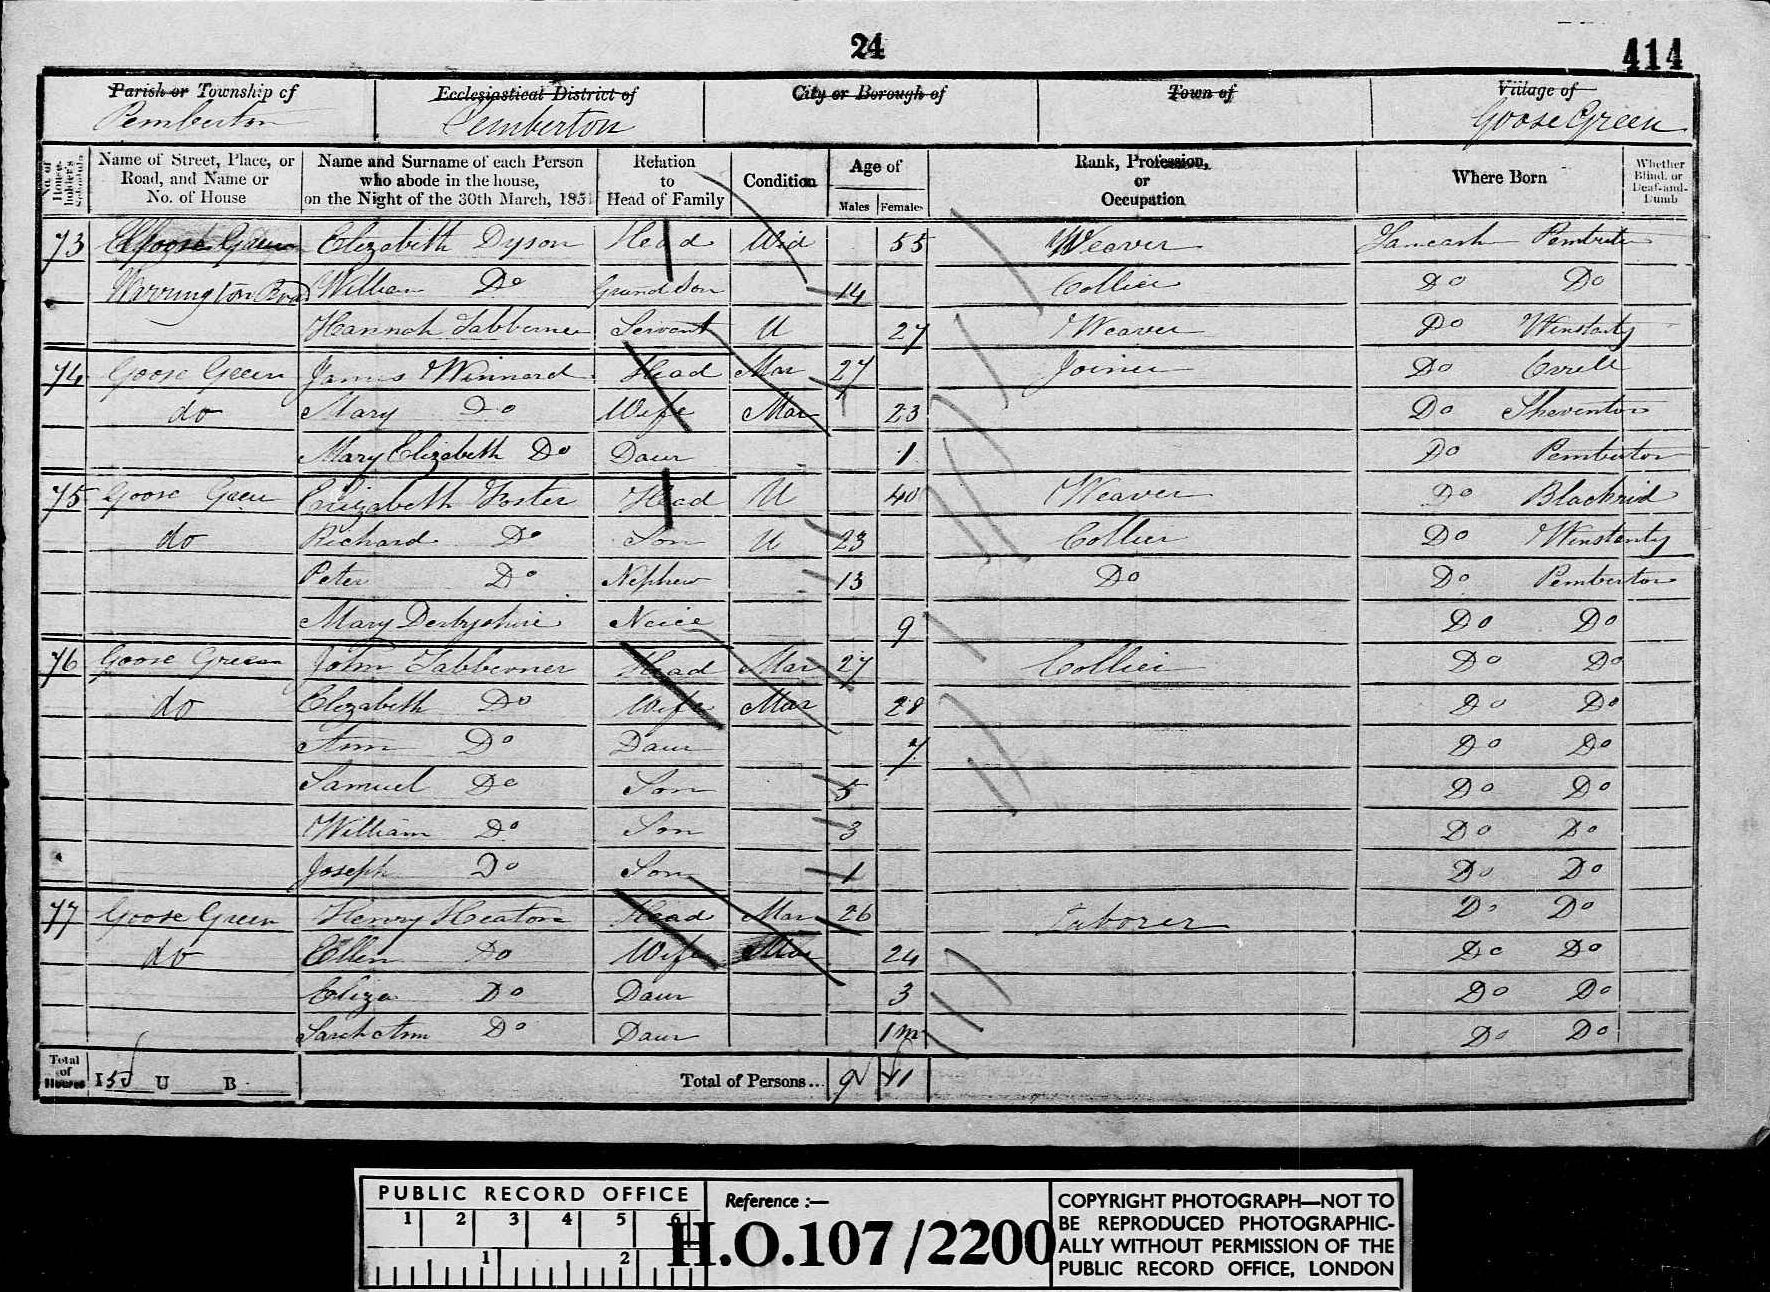 24
414
Parish or Township of Ecclesiastical District of City or Borough of Town of Village of
Pemberton Pemberton Goose Green
No. of House-holder's Schedule
Name of Street, Place, or Road, and Name or No. of House
Name and Surname of each Person who abode in the house, on the Night of the 30th March, 1851
Relation to Head of Family
Condition
Age of
Males Females
Rank, Profession, or Occupation
Where Born
Whether Blind, or Deaf-and-Dumb
73 Goose Green Elizabeth Dyson Head Wid 55 Weaver Lancash Pemberton
Warrington Road William Do Grand Son 14 Collier Do Do
Hannah Tabberner Servant U 27 Weaver Do Winstanly
74 Goose Green James Winnard Head Mar 27 Joiner Do Orrell
do Mary Do Wife Mar 23 Do Shevinton
Mary Elizabeth Do Daur 1 Do Pemberton
75 Goose Green Elizabeth Foster Head U 40 Weaver Do Blackrid
do Richard Do Son U 23 Collier Do Winstanly
Peter Do Nephew 13 Do Do Pemberton
Mary Derbyshire Neice 9 Do Do
76 Goose Green John Tabberner Head Mar 27 Collier Do Do
do Elizabeth Do Wife Mar 28 Do Do
Ann Do Daur 7 Do Do
Samuel Do Son 5 Do Do
William Do Son 3 Do Do
Joseph Do Son 1 Do Do
77 Goose Green Henry Heaton Head Mar 26 Laborer Do Do
do Ellen Do Wife Mar 24 Do Do
Eliza Do Daur 3 Do Do
Sarah Ann Do Daur 1m Do Do
Total of Houses I 5 U B Total of Persons... 9 11
PUBLIC RECORD OFFICE
1 2 3 4 5 6
1 2
Reference :—
H.O.107/2200
COPYRIGHT PHOTOGRAPH—NOT TO
BE REPRODUCED PHOTOGRAPHIC-
ALLY WITHOUT PERMISSION OF THE
PUBLIC RECORD OFFICE, LONDON